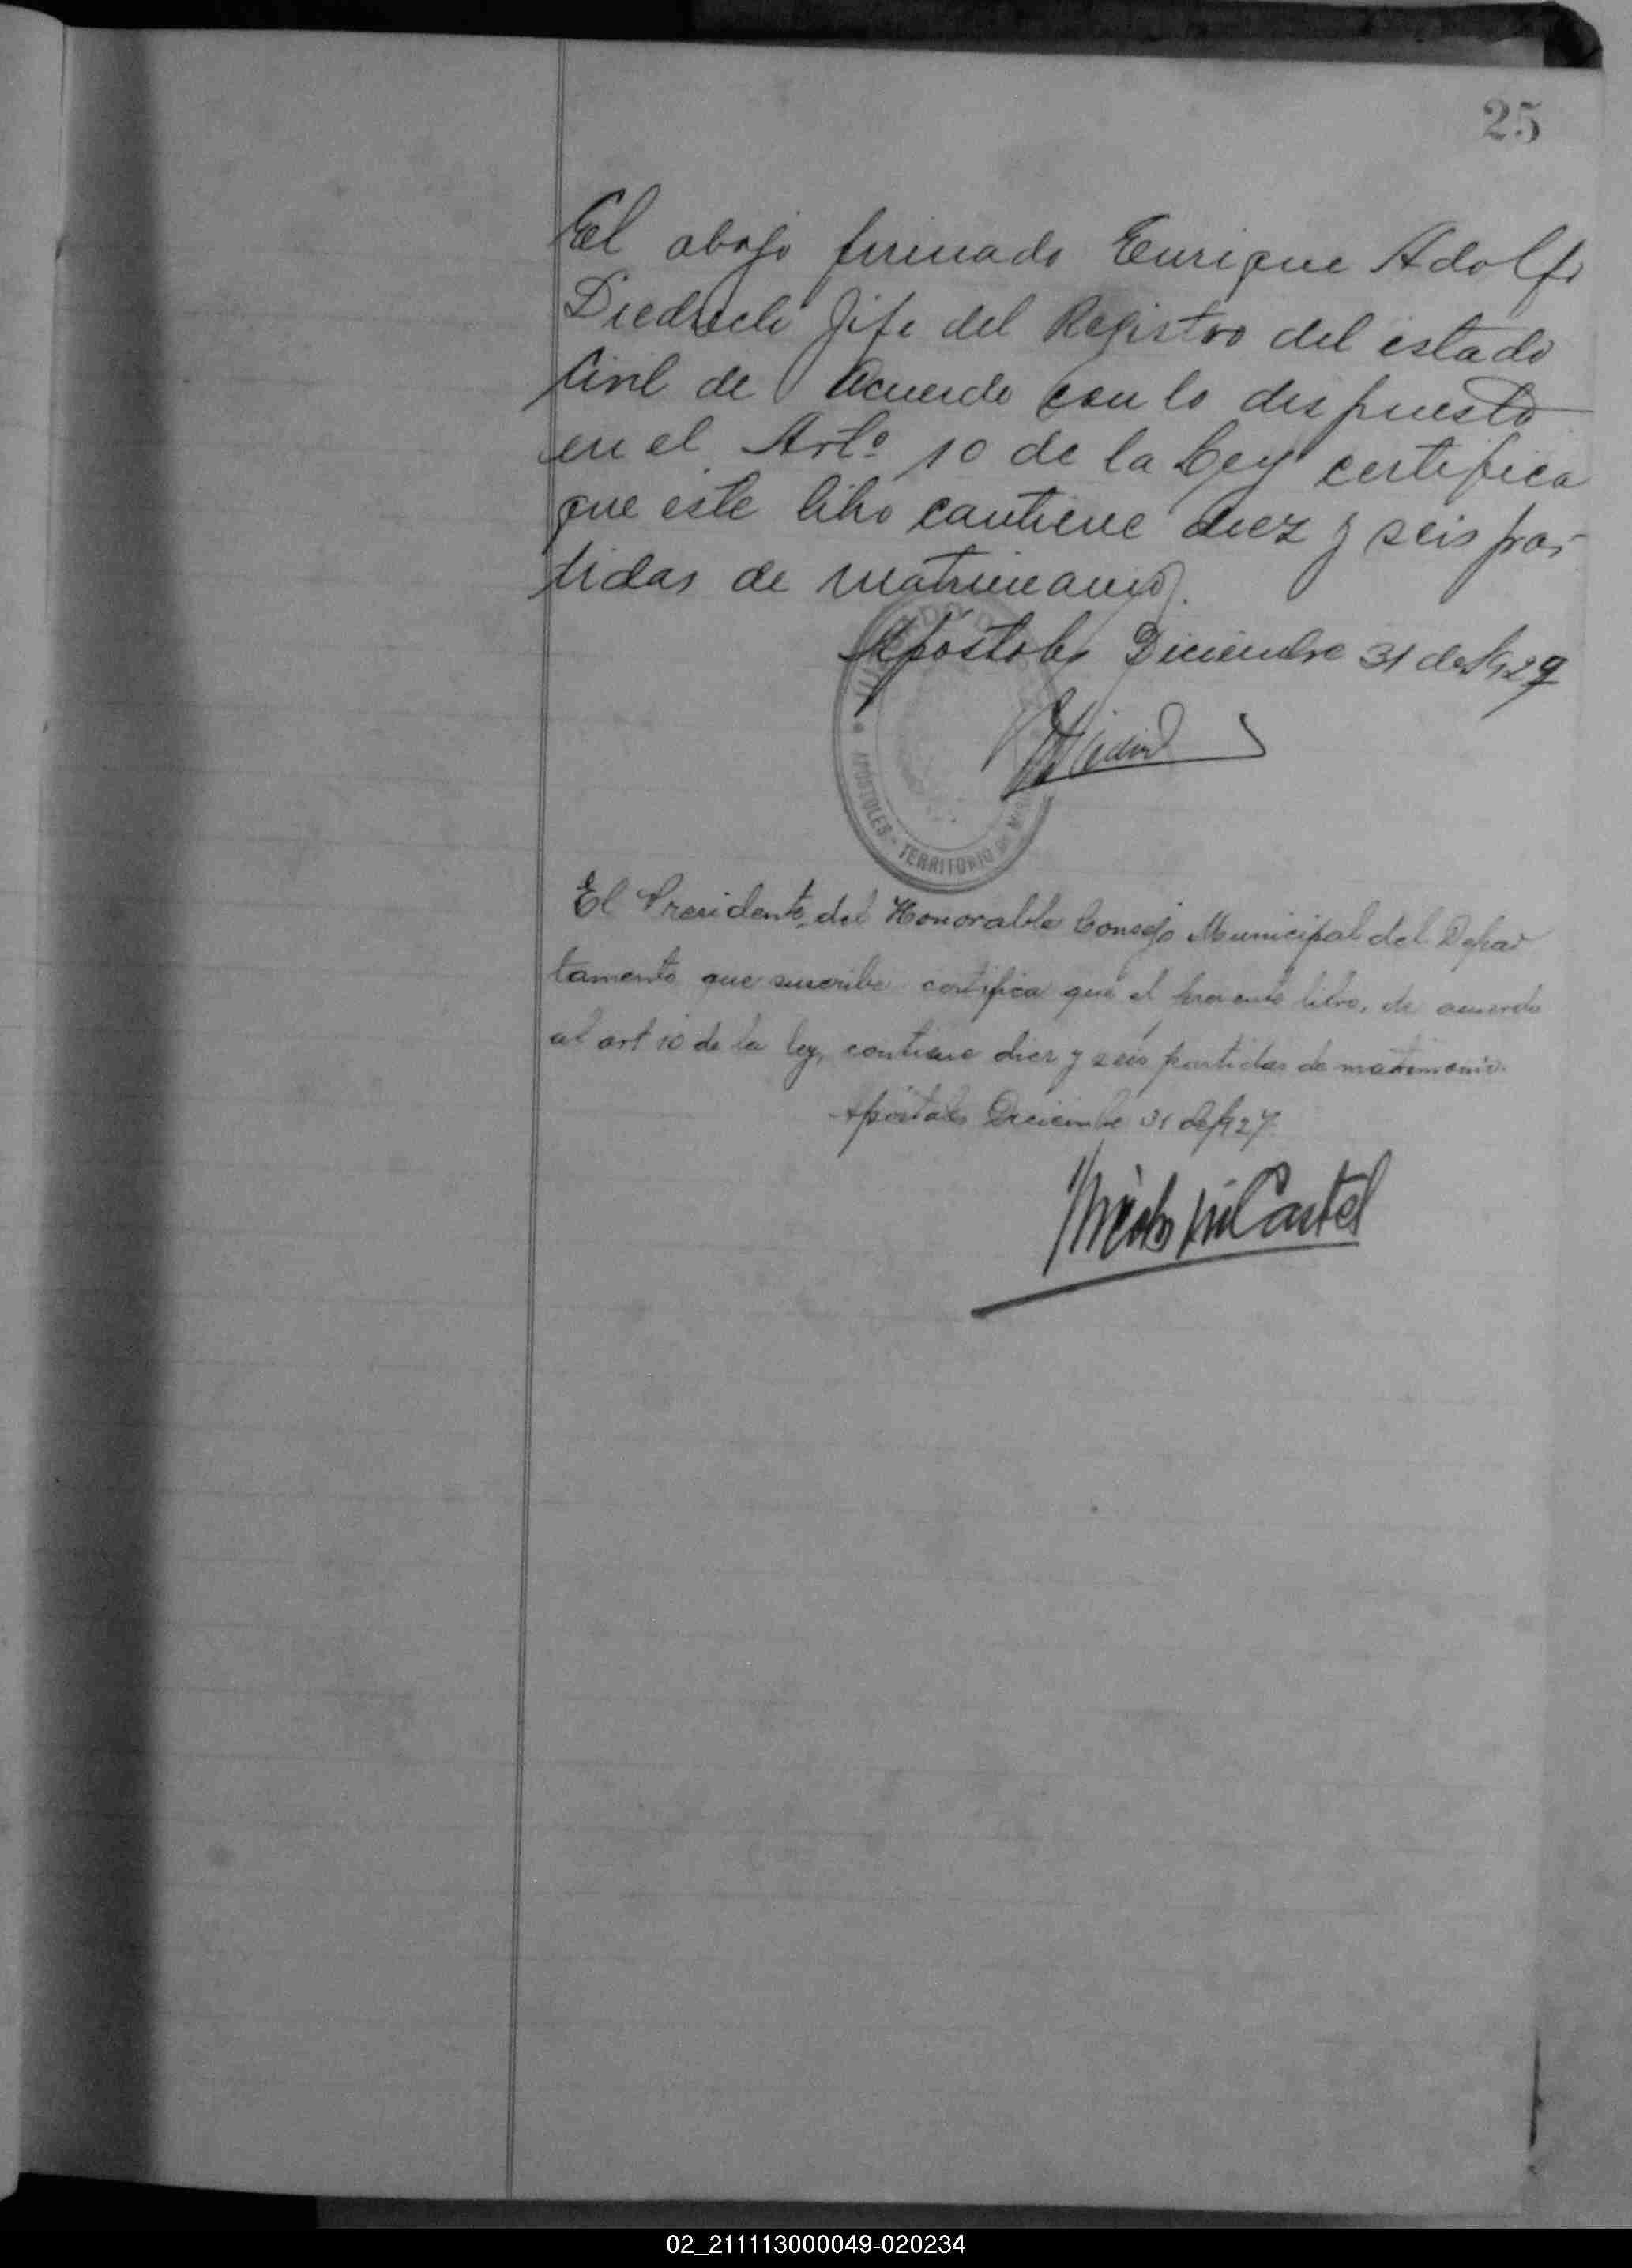 25
El abajo firmado Enrique Adolfo
Diedrich Jefe del Registro del estado
Civil de Acuerdo con lo dispuesto
en el Artº 10 de la Ley certifica
que este libro contiene diez y seis par-
tidas de matrimonio.
Apóstoles Diciembre 31 de 1927
APÓSTOLES - TERRITORIO DE
El Presidente del Honorable Consejo Municipal del Depar
tamento que suscribe certifica que el presente libro, de acuerdo
al art 10 de la ley, contiene diez y seis partidas de matrimonio.
Apóstoles Diciembre 31 de 1927
02_211113000049-020234